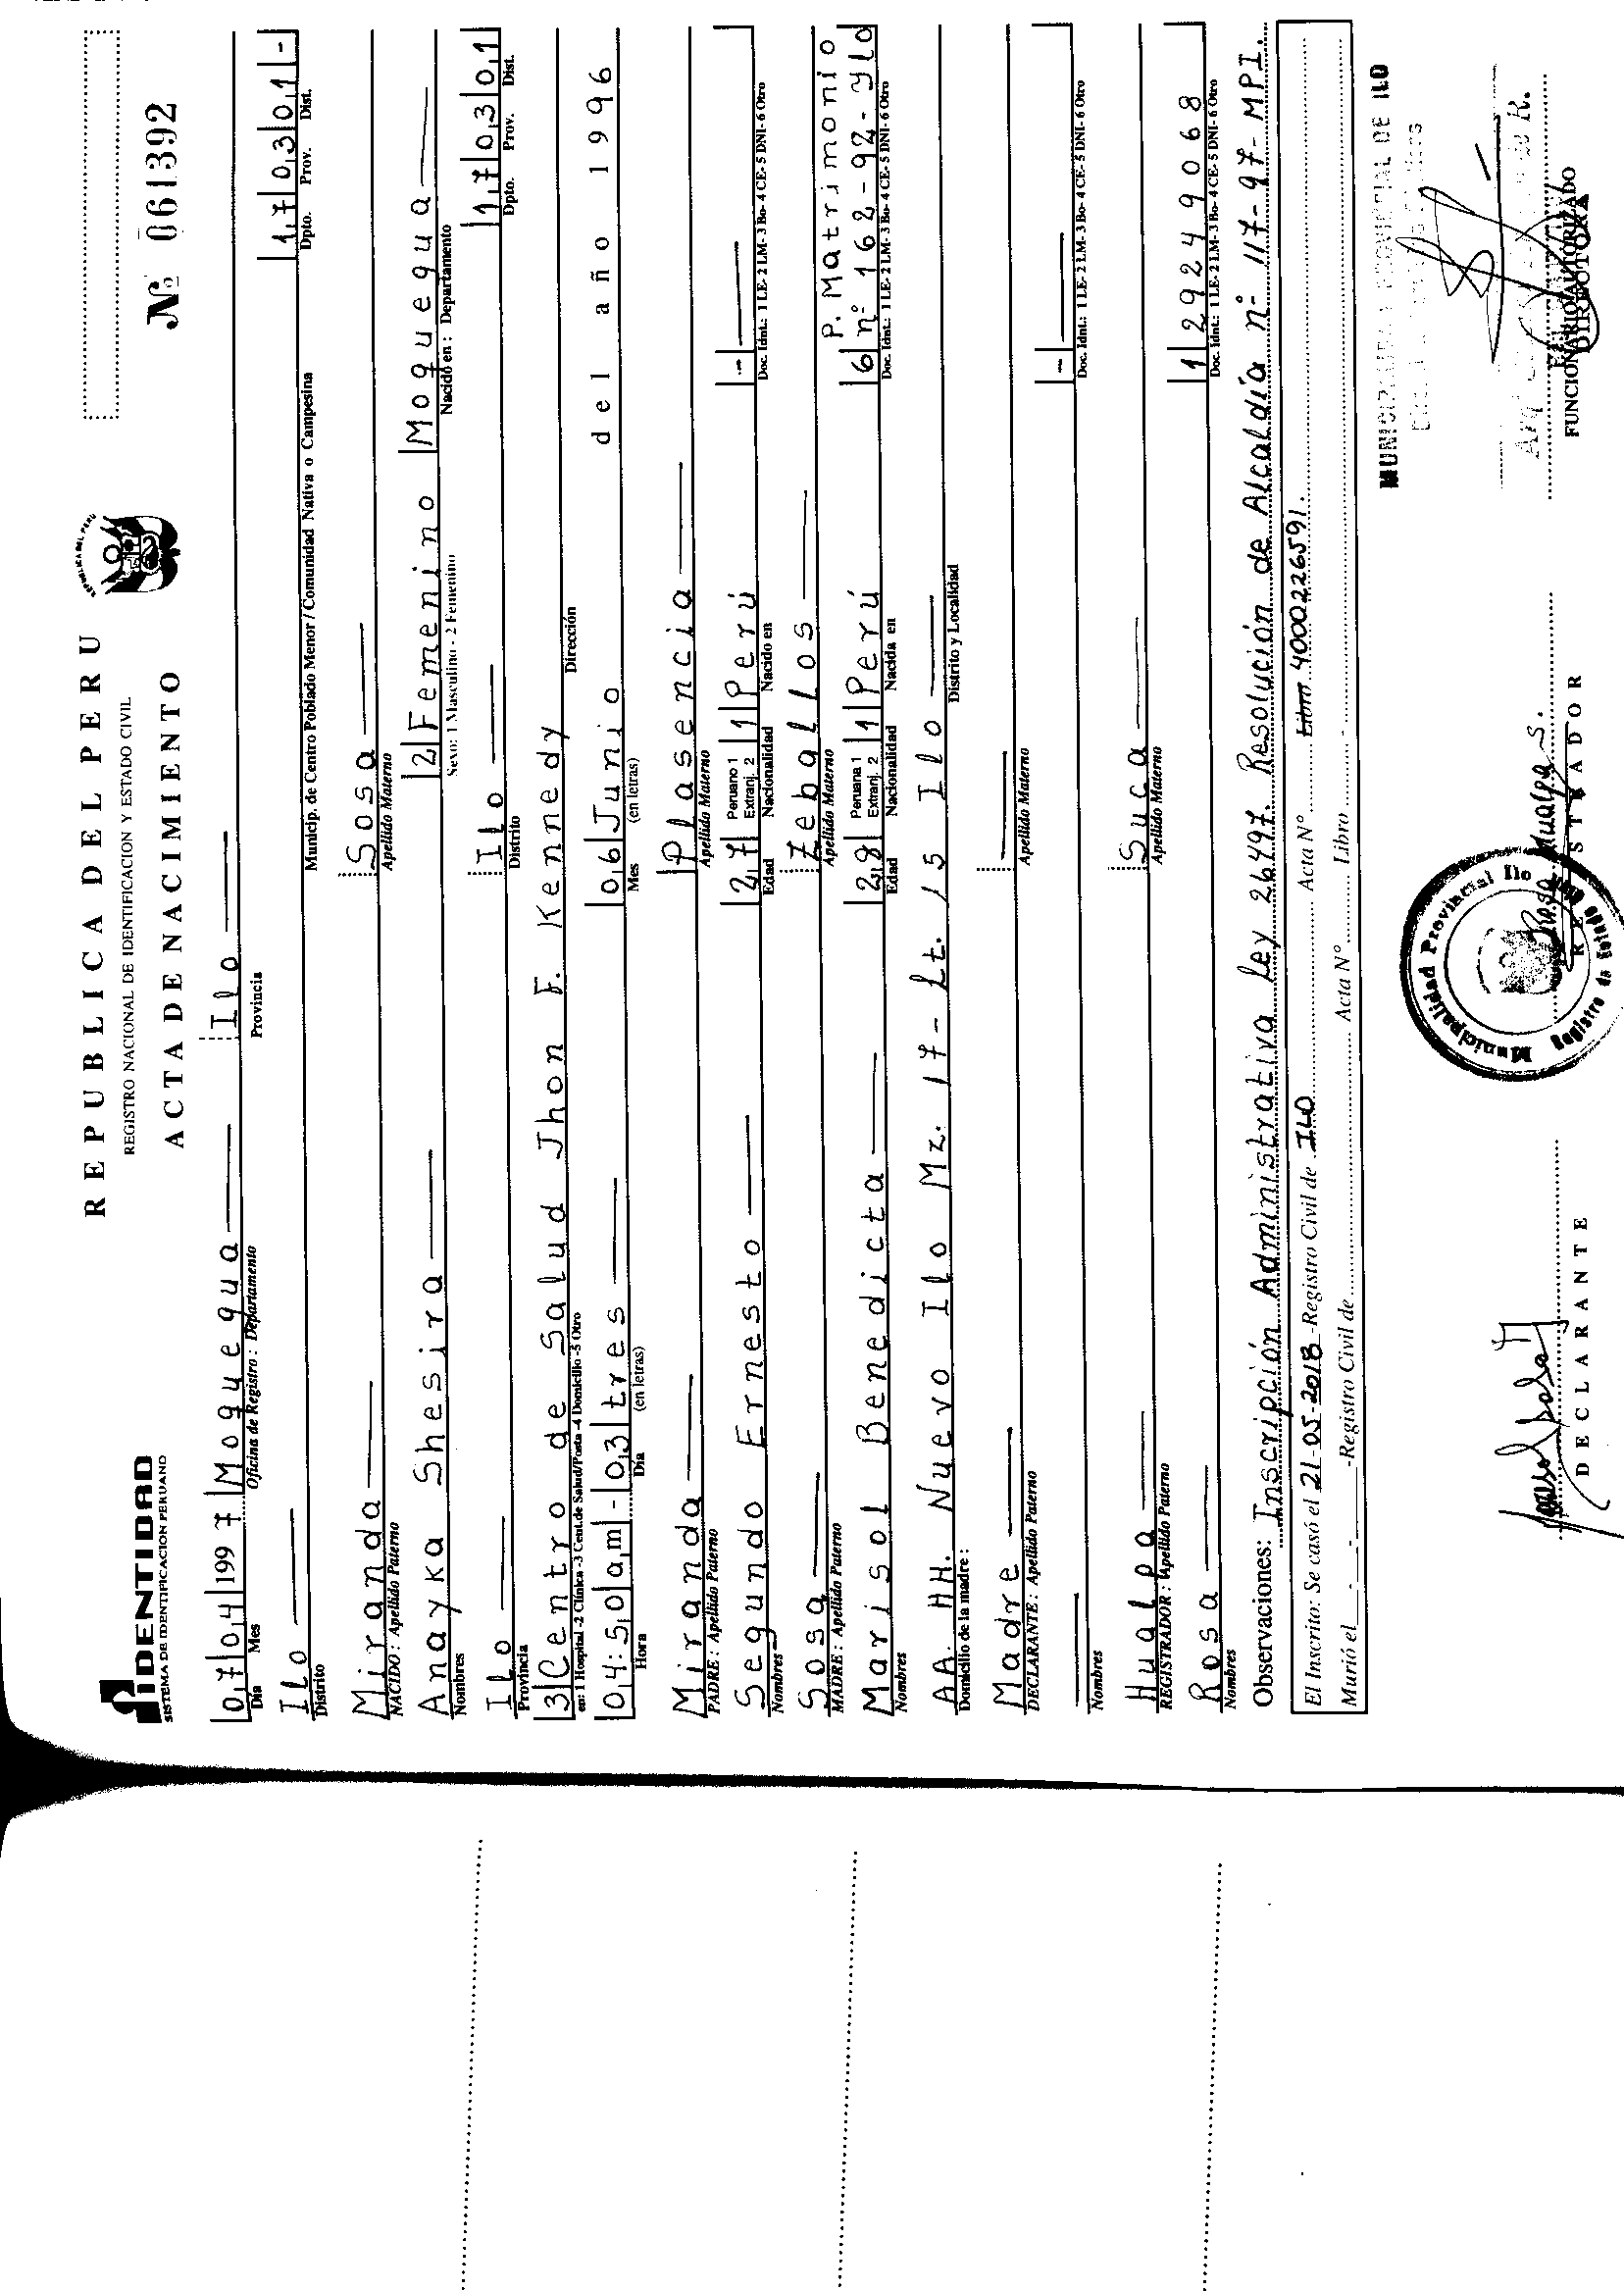 REPUBLICA DEL PERU
REGISTRO NACIONAL DE IDENTIFICACION Y ESTADO CIVIL
ACTA DE NACIMIENTO
REPUBLICA DEL PERU
IDENTIDAD
SISTEMA DE IDENTIFICACION PERUANO
Nº 061392
07 04 1997 Moquegua Ilo
Día Mes Oficina de Registro : Departamento Provincia
Ilo 17 03 01 -
Distrito Municip. de Centro Poblado Menor / Comunidad Nativa o Campesina Dpto. Prov. Dist.
Miranda Sosa
NACIDO : Apellido Paterno Apellido Materno
Anayka Shesira 2 Femenino Moquegua
Nombres Sexo: 1 Masculino - 2 Femenino Nacido en : Departamento
Ilo Ilo 17 03 01
Provincia Distrito Dpto. Prov. Dist.
3 Centro de Salud Jhon F. Kennedy
en: 1 Hospital -2 Clínica -3 Cent.de Salud/Posta -4 Domicilio -5 Otro Dirección
04:50 am - 03 tres 06 Junio del año 1996
Hora Día (en letras) Mes (en letras)
Miranda Plasencia
PADRE : Apellido Paterno Apellido Materno
Segundo Ernesto 27 Peruano 1 Extranj. 2 1 Perú -
Nombres Edad Nacionalidad Nacido en Doc. Idnt.: 1 LE- 2 LM- 3 Bo- 4 CE- 5 DNI- 6 Otro
Sosa Zeballos P. Matrimonio
MADRE : Apellido Paterno Apellido Materno
Marisol Benedicta 28 Peruana 1 Extranj. 2 1 Perú 6 nº 162-92-Ylo
Nombres Edad Nacionalidad Nacida en Doc. Idnt.: 1 LE- 2 LM- 3 Bo- 4 CE- 5 DNI- 6 Otro
AA. HH. Nuevo Ilo Mz. 17- Lt. 15 Ilo
Domicilio de la madre : Distrito y Localidad
Madre
DECLARANTE : Apellido Paterno Apellido Materno
-
Nombres Doc. Idnt.: 1 LE- 2 LM- 3 Bo- 4 CE- 5 DNI- 6 Otro
Hualpa Suca
REGISTRADOR : Apellido Paterno Apellido Materno
Rosa 1 29249068
Nombres Doc. Idnt.: 1 LE- 2 LM- 3 Bo- 4 CE- 5 DNI- 6 Otro
Observaciones: Inscripción Administrativa Ley 26497. Resolución de Alcaldía nº 117-97-MPI.
El Inscrito: Se casó el 21-05-2018 -Registro Civil de ILO Acta Nº Libro 4000226591.
Murió el - - -Registro Civil de Acta Nº Libro -
MUNICIPALIDAD PROVINCIAL DE ILO
Municipalidad Provincial Ilo
Registro de Estado Civil
Rosa Hualpa S.
DECLARANTE
REGISTRADOR
FUNCIONARIO AUTORIZADO
DIRECTORA